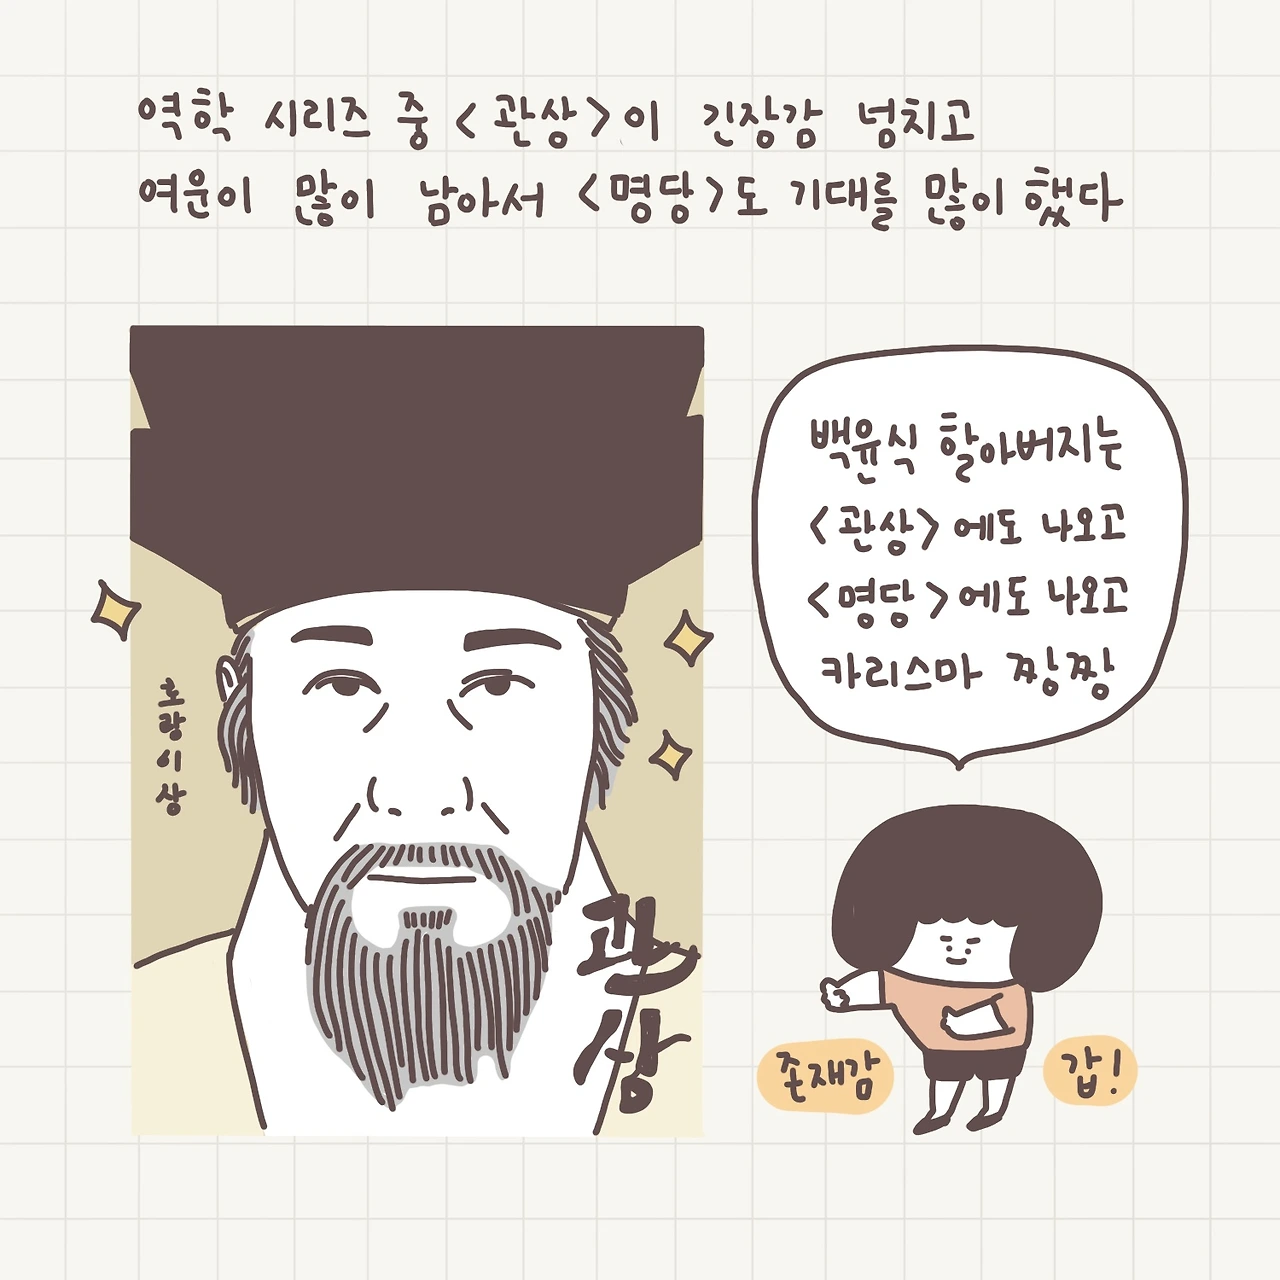 역학 시리즈 중 <관상>이 긴장감 넘치고
여운이 많이 남아서 <명당>도 기대를 많이 했다
호랑이상
관상
백윤식 할아버지는
<관상>에도 나오고
<명당>에도 나오고
카리스마 짱짱
존재감
갑!